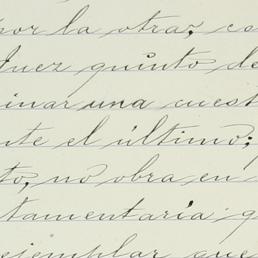 por la otra, co
Juez quinto de
inar una cuest
nte el último;
to, no obra en
tamentaria q
ejemplar que